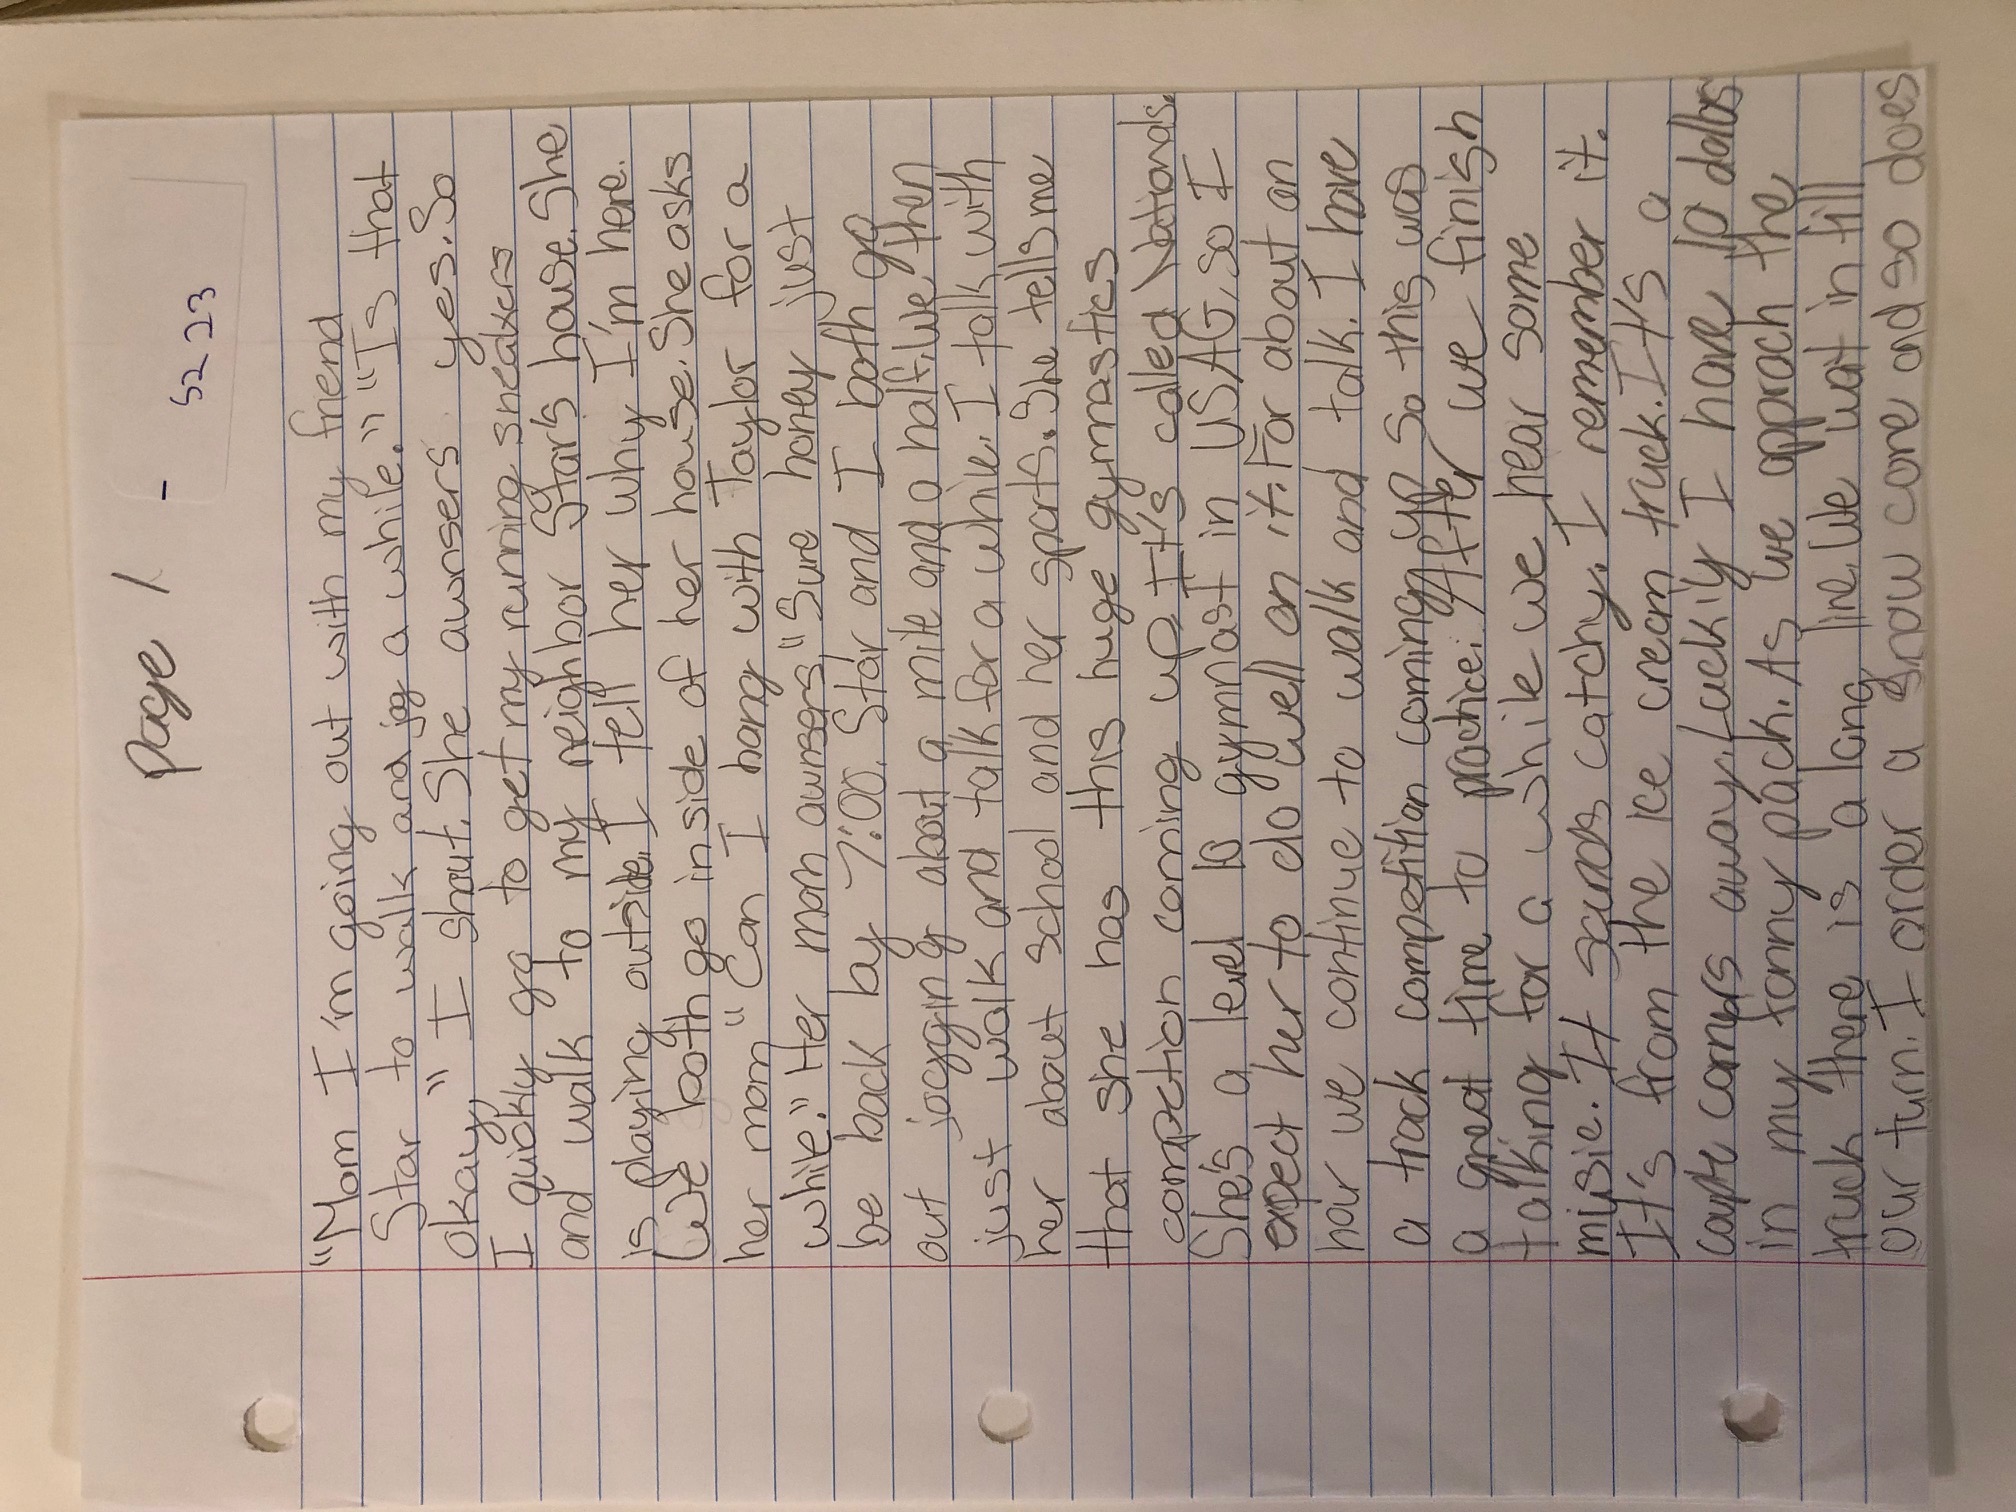 page 1 -
5223
"Mom I'm going out with my friend
Star to walk and jog a while." "Is that
okay," I shout. She awnsers yes. So
I quickly go to get my running sneakers
and walk to my neighbor Star's house. She
is playing outside. I tell her why I'm here.
We both go inside of her house. She asks
her mom "Can I hang with Taylor for a
while." Her mom awnsers, "Sure honey just
be back by 7:00. Star and I both go
out jogging about a mile and a half. We then
just walk and talk for a while. I talk with
her about school and her sports. She tells me
that she has this huge gymnastics
compction coming up. It's called Nationals.
She's a level 10 gymnast in USAG, so I
expect her to do well on it. For about an
hour we continue to walk and talk. I have
a track competition coming up so this was
a great time to practice. After we finish
talking for a while we hear some
music. It sounds catchy. I remember it.
It's from the ice cream truck. It's a
couple corners away. Luckily I have 10 dollars
in my fanny pack. As we approach the
truck there is a long line. We wait in till
our turn. I order a snow cone and so does